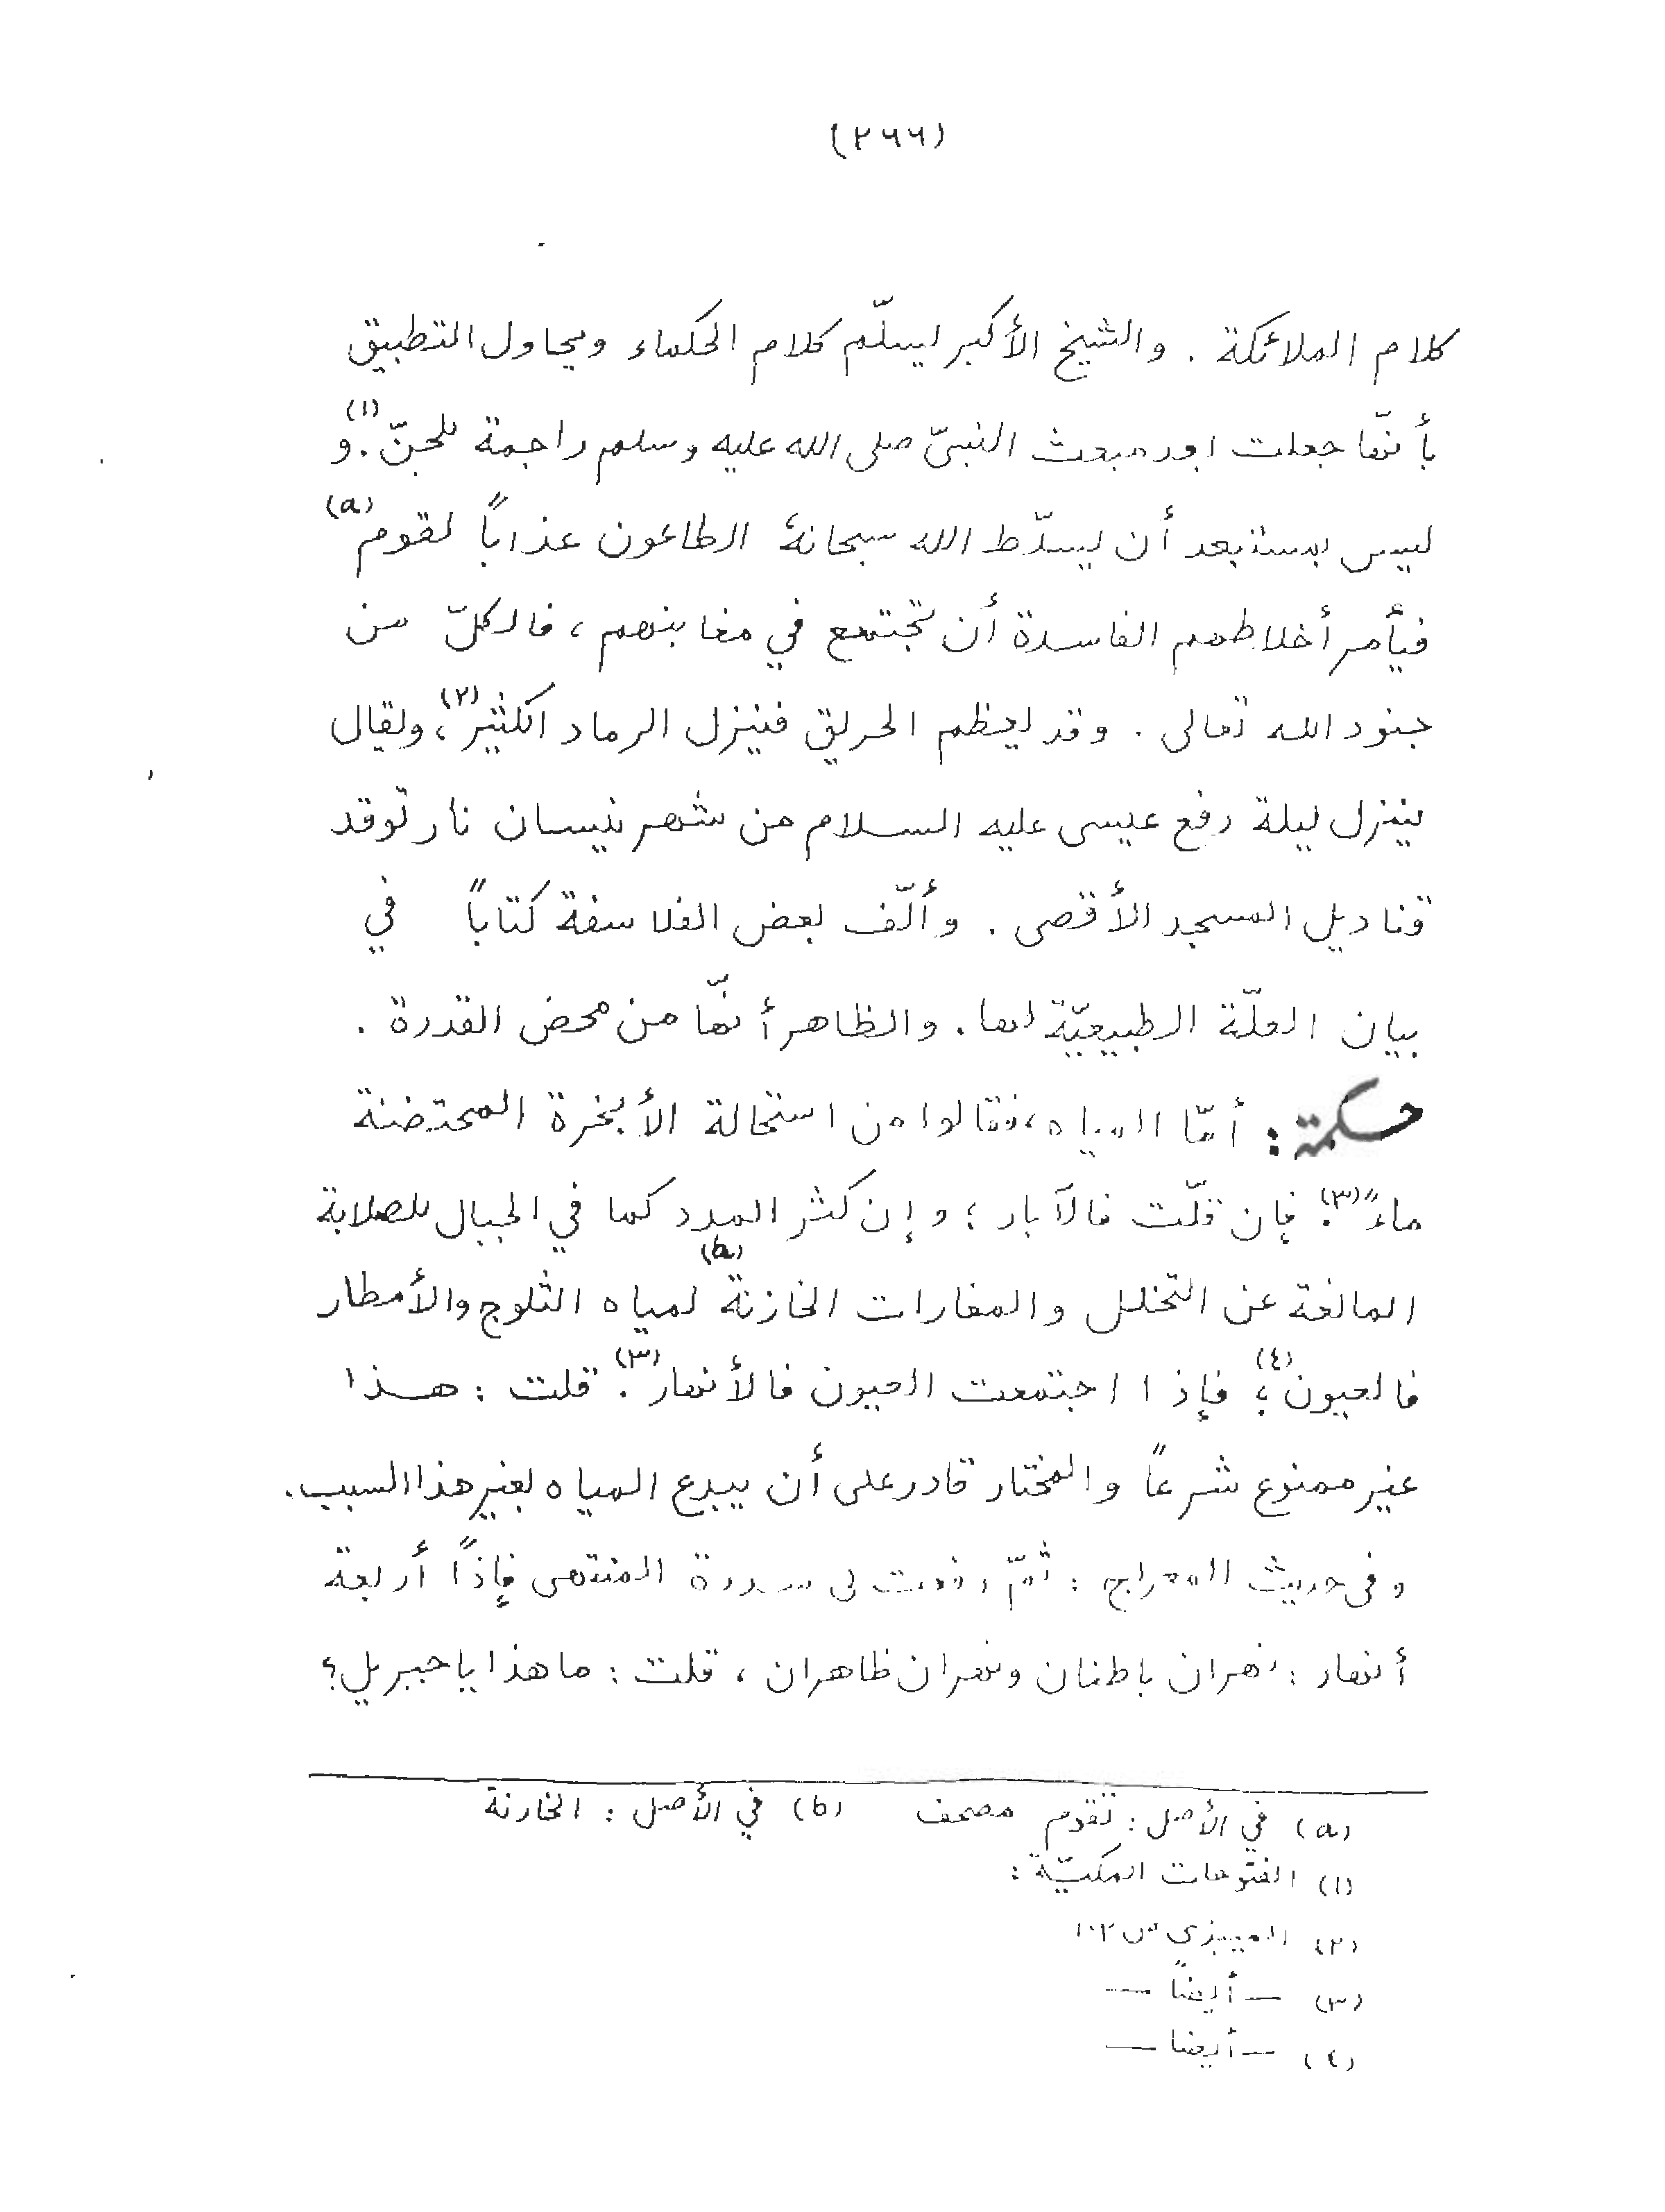 (٢٦٦)
كلام الملائكة . والشيخ الأكبر يسلّم كلام الحكماء ويحاول التطبيق
بأنّها جعلت بعد مبعث النبيّ صلى الله عليه وسلم راجمة للجنّ(١). و
ليس بمستبعد أن يسلّط الله سبحانهُ الطاعون عذاباً لقوم(a)
فيأمر أخلاطهم الفاسدة أن تجتمع في مغابنهم ، فالكلّ من
جنود الله تعالى . وقد يعظم الحريق فينزل الرماد الكثير(٢)، ويقال
ينزل ليلة رفع عيسى عليه السلام من شهر نيسان نار توقد
قناديل المسجد الأقصى . وألّف بعض الفلاسفة كتاباً في
بيان العلّة الطبيعيّة لها . والظاهر أنّها من محض القدرة .
حكمة : أمّا المياه ، فقالوا من استحالة الأبخرة المحتضنة
ماءً(٣). فإن قلّت فالآبار ؛ وإن كثر المدد كما في الجبال للصلابة
المانعة عن التخلل والمغارات الخازنة(b) لمياه الثلوج والأمطار
فالعيون(٤)؛ فإذا اجتمعت العيون فالأنهار(٣). قلت : هذا
غير ممنوع شرعاً والمختار قادر على أن يبدع المياه بغير هذا السبب .
وفى حديث المعراج : ثمّ رفعت لى سدرة المنتهى فإذاً أربعة
أنهار : نهران باطنان ونهران ظاهران ، قلت : ما هذا يا جبريل ؟
(a) في الأصل : تقدم مصحف (b) في الأصل : الخارنة
(١) الفتوحات المكيّة :
(٢) الميبذى ص ١٠٢
(٣) — أيضاً —
(٤) — أيضا —